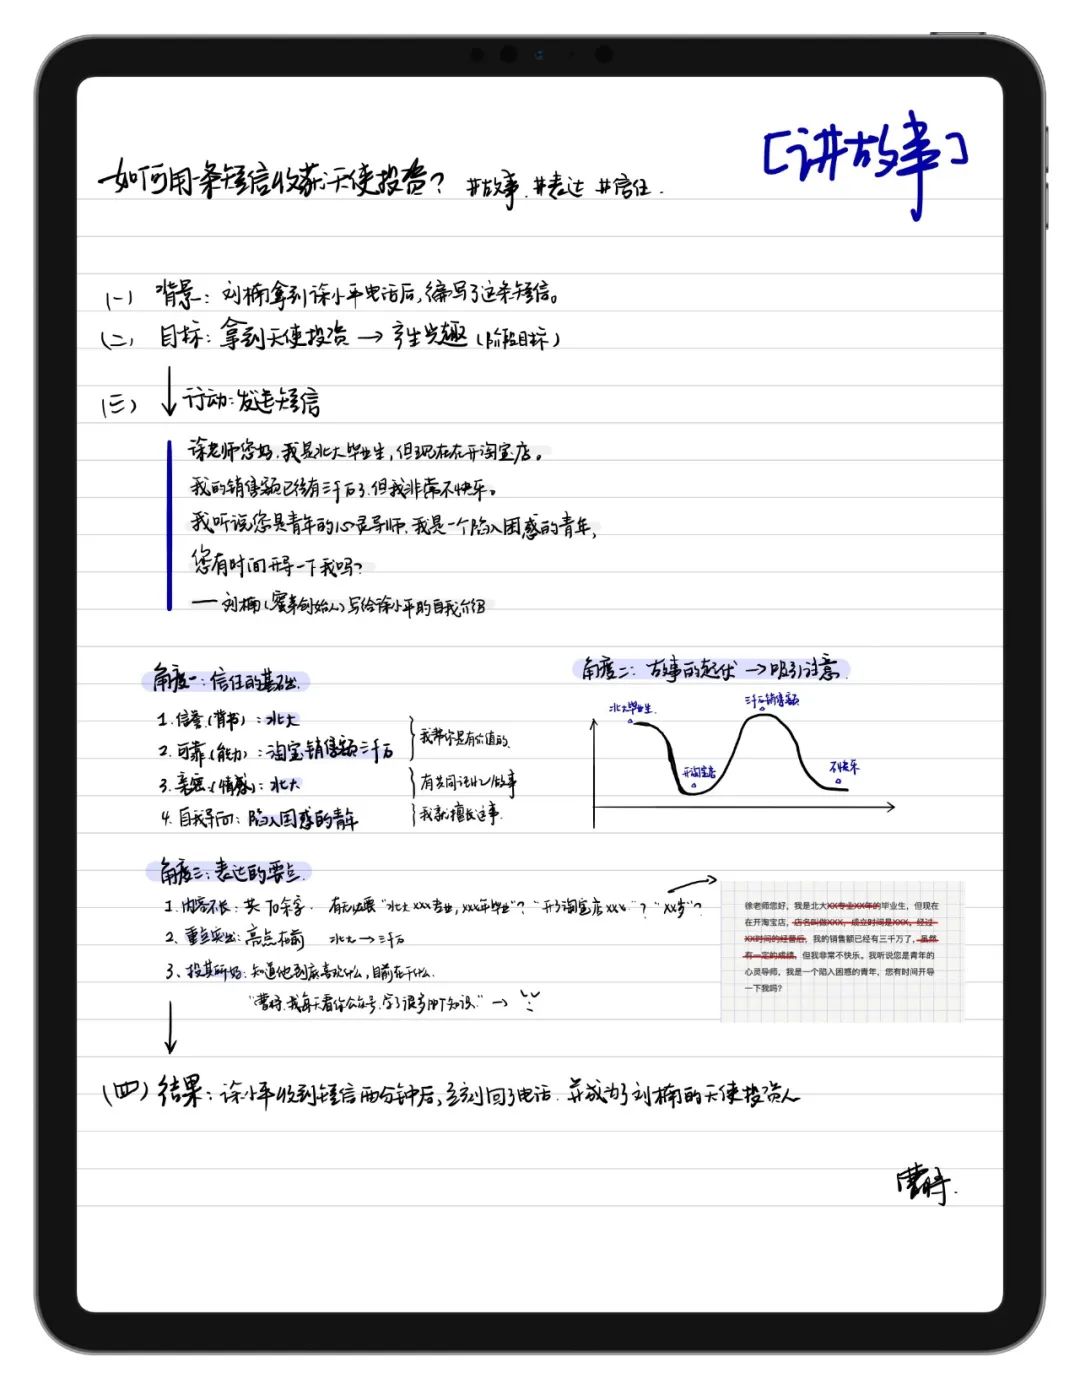 [讲故事]
如何用一条短信收获天使投资? #故事 #表达 #信任.
(一) 背景: 刘楠拿到徐小平电话后,编写了这条短信。
(二) 目标: 拿到天使投资 → 产生兴趣 (阶段目标)
(三) 行动: 发送短信
徐老师您好,我是北大毕业生,但现在在开淘宝店。
我的销售额已经有三千万了,但我非常不快乐。
我听说您是青年的心灵导师,我是一个陷入困惑的青年,
您有时间开导一下我吗?
— 刘楠(蜜芽创始人)写给徐小平的自我介绍
角度一: 信任的基础.
1. 信誉(背书): 北大
2. 可靠(能力): 淘宝销售额三千万
我帮你是有价值的.
3. 亲密(情感): 北大
有共同话的/故事
4. 自我导向: 陷入困惑的青年
我就擅长这事.
角度二: 故事的起伏 → 吸引注意.
北大毕业生.
三千万销售额
开淘宝店
不快乐
角度三: 表达的要点.
1. 内容不长: 共70余字. 有无必要 "北大xxx专业, xxx年毕业"? "开了淘宝店xxx"? "xx岁"?
2. 重点突出: 亮点在前 北大 → 三千万
3. 投其所好: 知道他到底喜欢什么,目前在干什么.
"曹将,我每天看你公众号,学了很多PPT知识." →
徐老师您好,我是北大XX专业XX年的毕业生,但现在
在开淘宝店,店名叫做XXX,成立时间是XXX,经过
XX时间的经营后,我的销售额已经有三千万了,虽然
有一定的成绩,但我非常不快乐。我听说您是青年的
心灵导师,我是一个陷入困惑的青年,您有时间开导
一下我吗?
(四) 结果: 徐小平收到短信两分钟后,立刻回了电话. 并成为了刘楠的天使投资人
曹将.